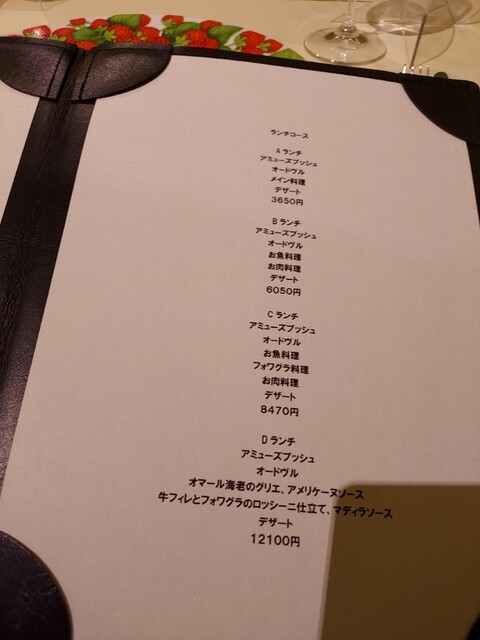 ランチコース
Aランチ
アミューズブッシュ
オードヴル
メイン料理
デザート
3650円
Bランチ
アミューズブッシュ
オードヴル
お魚料理
お肉料理
デザート
6050円
Cランチ
アミューズブッシュ
オードヴル
お魚料理
フォワグラ料理
お肉料理
デザート
8470円
Dランチ
アミューズブッシュ
オードヴル
オマール海老のグリエ、アメリケーヌソース
牛フィレとフォワグラのロッシーニ仕立て、マディラソース
デザート
12100円